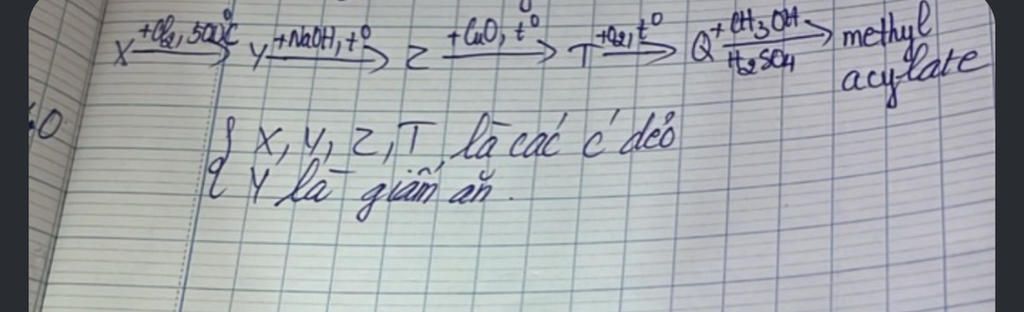 X +Cl2, 500°C → Y +NaOH, t° → Z +CuO, t° → T +O2, t° → Q +CH3OH → methyl
H2SO4 acylate
{ X, Y, Z, T là các c' dẻo
Y là giấm ăn.